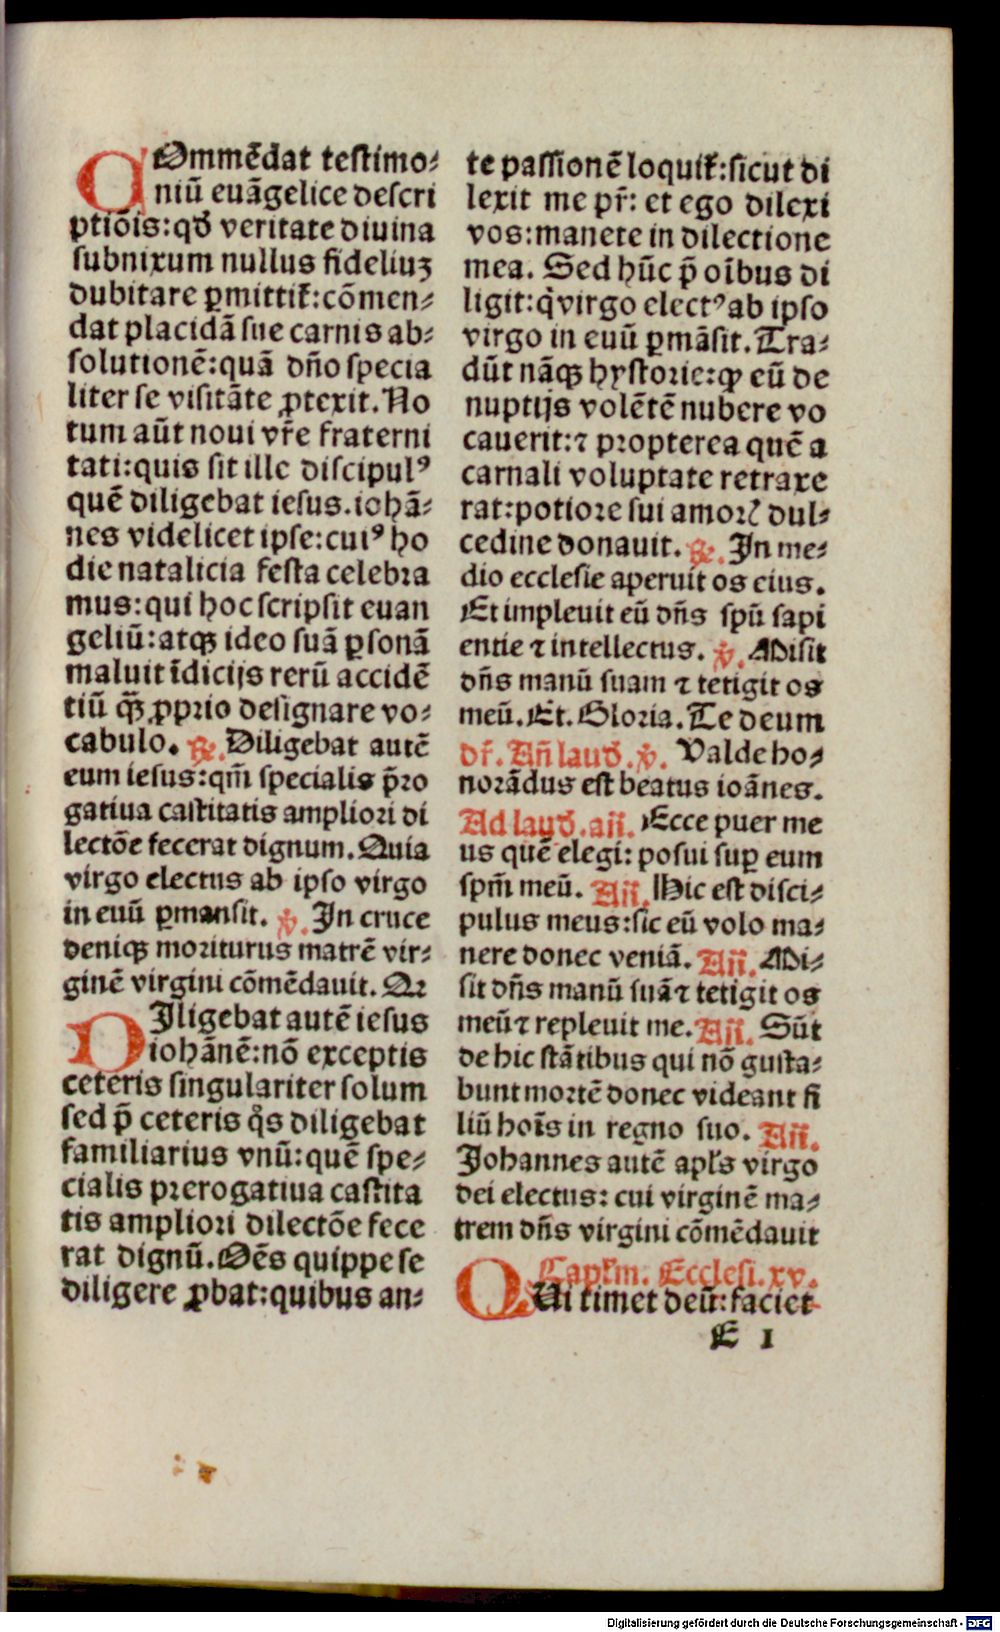 COmmēdat testimo⸗
niū euāgelice descri
ptiōis: qđ veritate diuina
subnixum nullus fideliuꝫ
dubitare ꝑmittit̄: cōmen⸗
dat placidā sue carnis ab⸗
solutionē: quā dn̄o specia
liter se visitāte ꝓtexit. No
tum aūt noui vr̄e fraterni
tati: quis sit ille discipulꝰ
quē diligebat iesus. iohā⸗
nes videlicet ipse: cuiꝰ ho
die natalicia festa celebra
mus: qui hoc scripsit euan
geliū: atqꝫ ideo suā ꝑsonā
maluit īdicijs rerū accidē
tiū qꝫ̄ ꝓprio designare vo⸗
cabulo. ℟. Diligebat autē
eum iesus: qm̄ specialis p̄ro
gatiua castitatis ampliori di
lectōe fecerat dignum. Quia
virgo electus ab ipso virgo
in euū ꝑmansit. ℣. In cruce
deniqꝫ moriturus matrē vir⸗
ginē virgini cōmēdauit. Qꝛ
DIligebat autē iesus
iohānē: nō exceptis
ceteris singulariter solum
sed p̄ ceteris q̊s diligebat
familiarius vnū: quē spe⸗
cialis prerogatiua castita
tis ampliori dilectōe fece
rat dignū. Oēs quippe se
diligere ꝓbat: quibus an⸗
te passionē loquit̄: sicut di
lexit me pr̄: et ego dilexi
vos: manete in dilectione
mea. Sed hūc p̄ oībus di
ligit: q̇ virgo electꝰ ab ipso
virgo in euū ꝑmāsit. Tra⸗
dūt nāqꝫ hystorie: ꝙ eū de
nuptijs volētē nubere vo
cauerit: ⁊ propterea quē a
carnali voluptate retraxe
rat: potiore sui amorꝭ dul⸗
cedine donauit. ℟. In me⸗
dio ecclesie aperuit os eius.
Et impleuit eū dn̄s spū sapi
entie ⁊ intellectus. ℣. Misit
dn̄s manū suam ⁊ tetigit os
meū. Et. Gloria. Te deum
dr̄. Añ laud̄. ℣. Valde ho⸗
norādus est beatus ioānes.
Ad laud̄. añ. Ecce puer me
us quē elegi: posui suꝑ eum
spm̄ meū. Añ. Hic est disci⸗
pulus meus: sic eū volo ma⸗
nere donec veniā. Añ. Mi⸗
sit dn̄s manū suā ⁊ tetigit os
meū ⁊ repleuit me. Añ. Sūt
de hic stātibus qui nō gusta⸗
bunt mortē donec videant fi
liū hoīs in regno suo. Añ.
Johannes autē apl̄s virgo
dei electus: cui virginē ma⸗
trem dn̄s virgini cōmēdauit
Capl̄m. Ecclesi. xv.
QUi timet deū: faciet
E 1
Digitalisierung gefördert durch die Deutsche Forschungsgemeinschaft - DFG